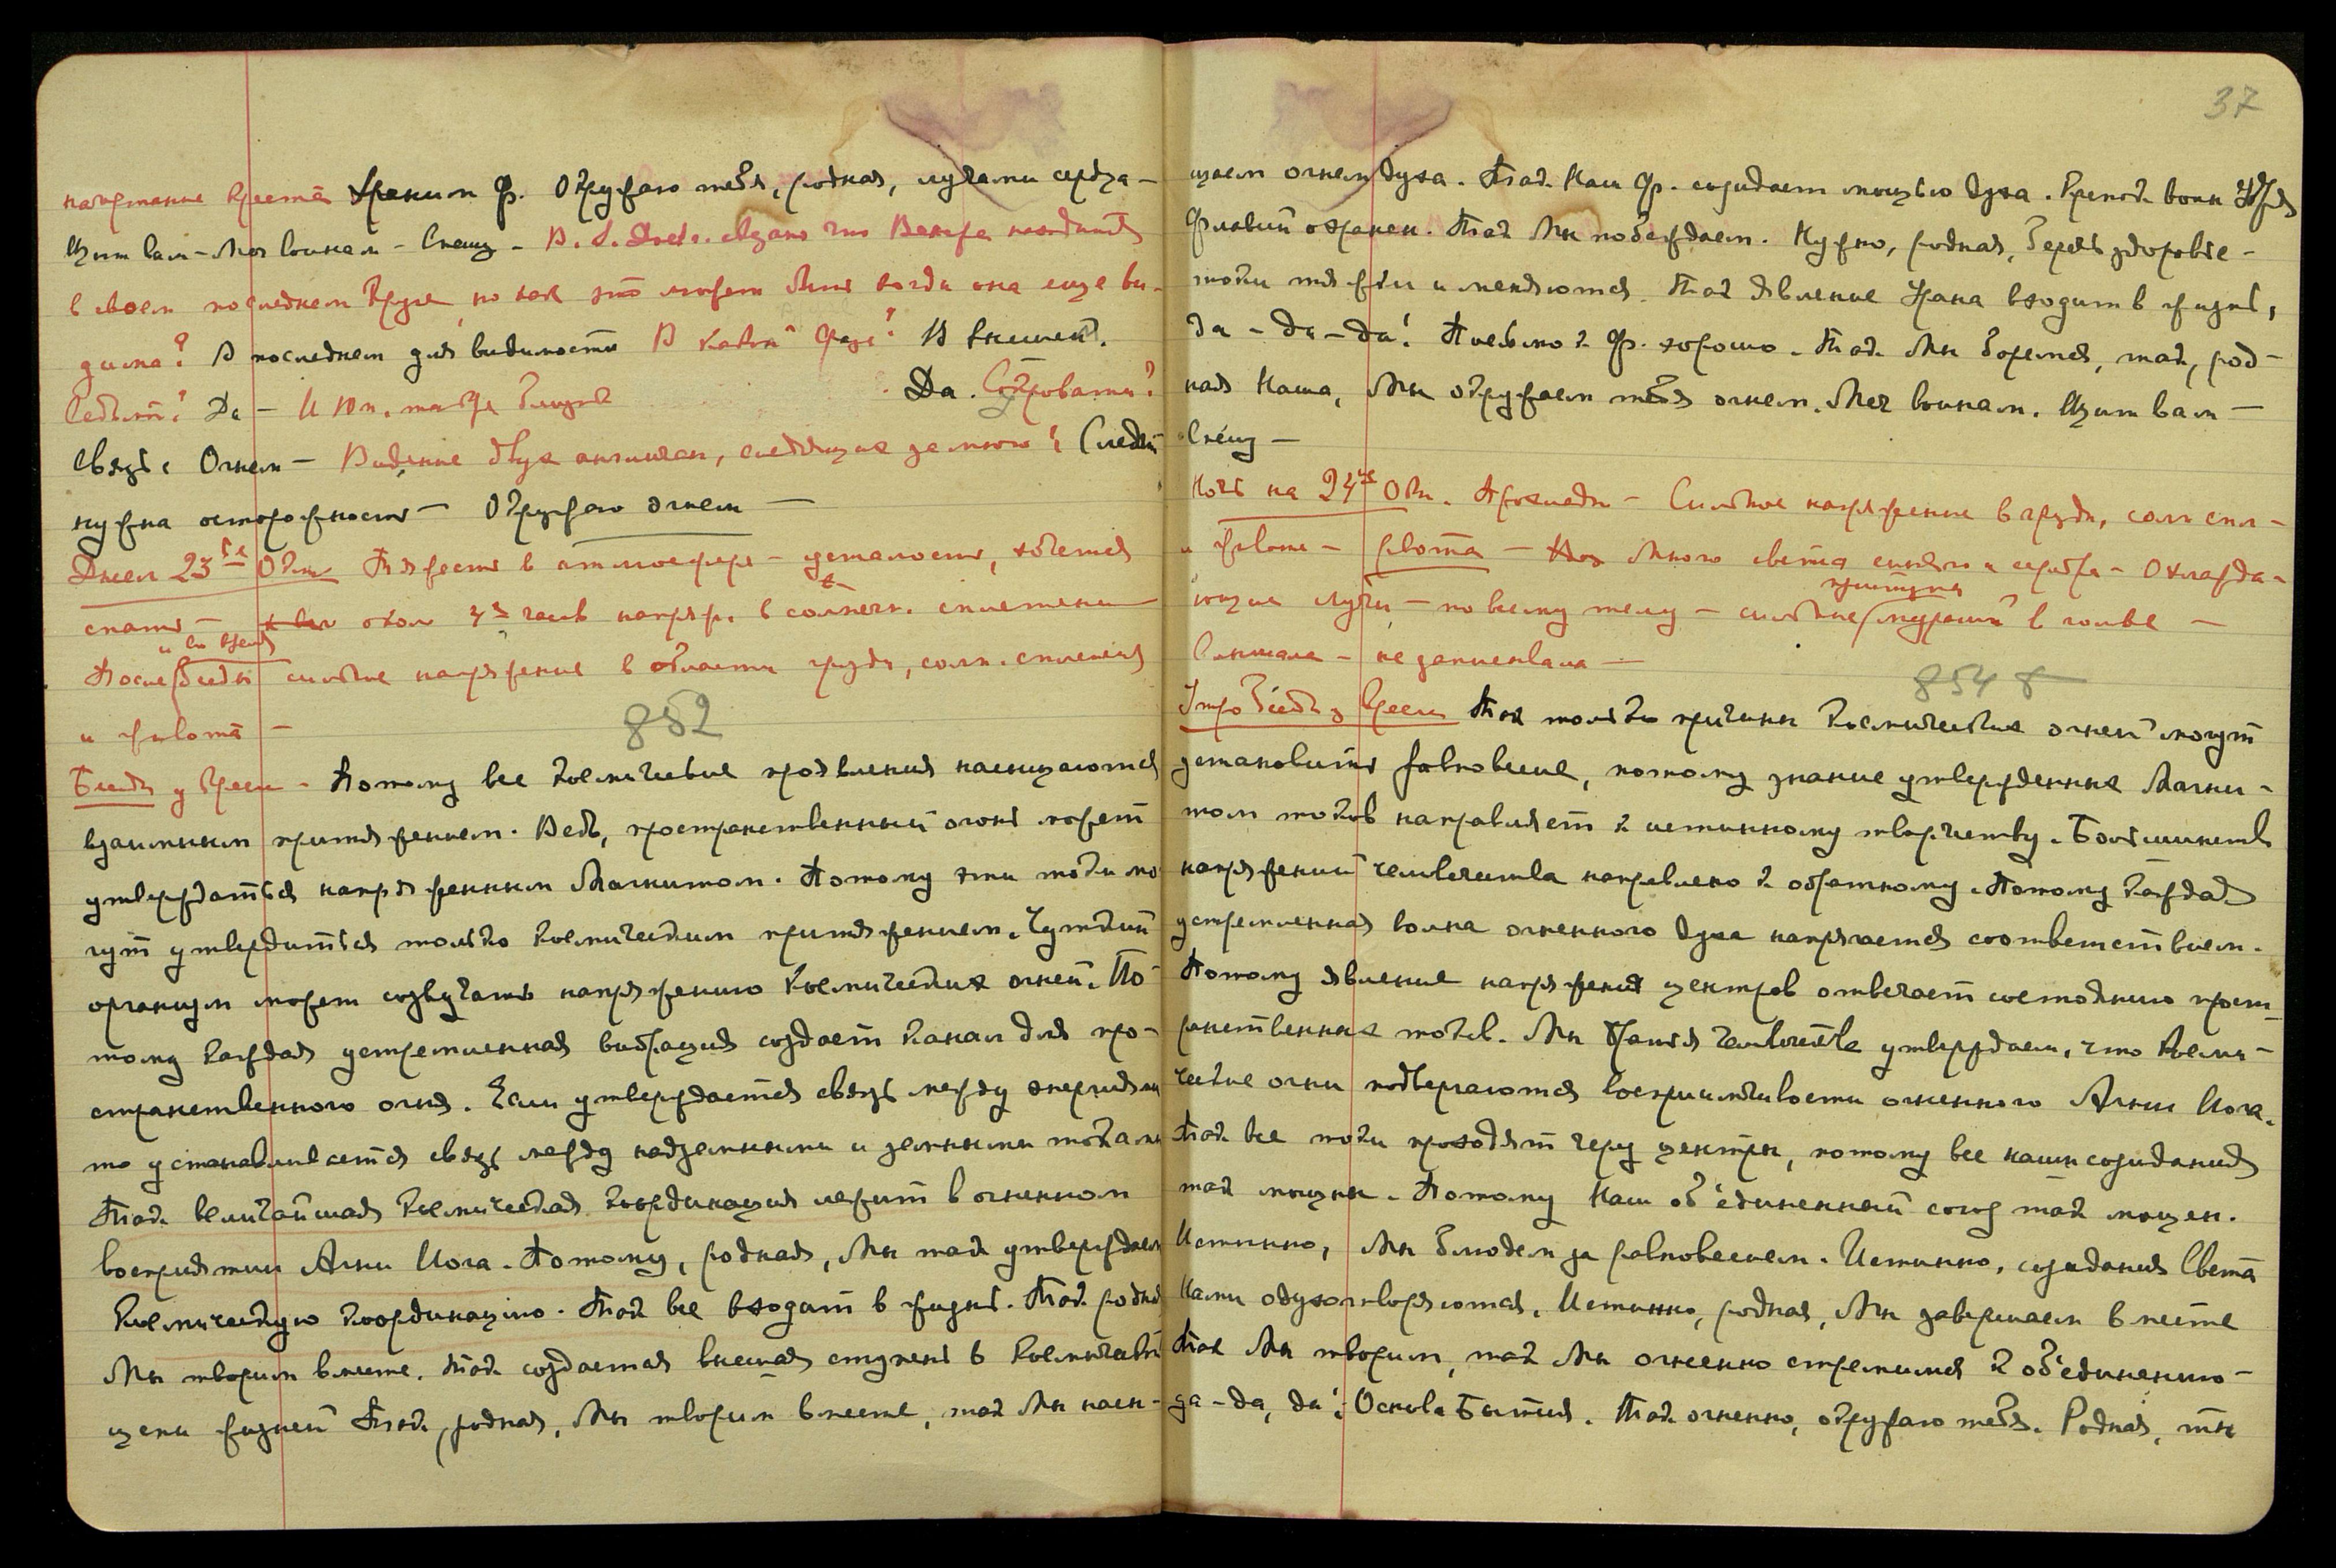 начертание креста Храним Ф. Окружаю тебя, родная, лучами сердца –
Щит вам – Меч воинам – Спешу – В. сказано что Венера находится
в своем последнем круге, но как это может быть когда она еще ви-
дима? В последнем для видимости В какой фазе? В высшей.
Седьмой? Да – И Юп. также
Да.
Связь с Огнем – Видение двух англичан, следящих за мною?
нужна осторожность – Окружаю огнем –
Днем 23го Окт. Тяжесть в атмосфере – усталость, хочется
спать – около 4х часов напряж. в солнечн. сплетении –
и во время
После беседы сильное напряжение в области груди, солн. сплетения
и живота –
852
Беседа у Креси – Потому все космические проявления насыщаются
взаимным притяжением. Ведь, пространственный огонь может
утверждаться напряженным Магнитом. Потому эти токи мо-
гут утвердиться только космическим притяжением. Чуткий
организм может созвучать напряжению космических огней. По-
тому каждая устремленная вибрация создает канал для про-
странственного огня. Если утверждается связь между энергиями
то устанавливается связь между надземными и земными токами
Так величайшая космическая координация лежит в огненном
восприятии Агни Йога. Потому, родная, Мы так утверждаем
космическую координацию. Так все входит в жизнь. Так родная
Мы творим вместе. Так создается высшая ступень в
жизней Так, родная, Мы творим вместе, так Мы насы-
37
щаем огнем духа. Так Наш Ф. созидает мощью духа.
Флавий охранен. Так Мы побеждаем. Нужно, родная, беречь здоровье –
токи тяжки и меняются. Так явление Урана входит в жизнь,
да – да – да! Письмо к Ф. хорошо. Так Мы боремся, так, род-
ная Наша, Мы окружаем тебя огнем. Меч воинам. Щит вам –
Спешу –
Ночь на 24ое Окт. Прохлады – Сильное напряжение в груди, солн спл –
и животе – рвота – Много света синяго и серебра – Охлажда-
приступы
ющие лучи – по всему телу – сильные мурашки в голове –
Слышала – не записывала –
854
Утро беседа у Креси Так только причины космических огней могут
установить равновесие, потому знание утвержденных Магни-
том токов направляет к истинному творчеству. Большинство
напряжений человечества направлено к обратному. Потому каждая
устремленная волна огненного духа напрягается соответствием.
Потому явление напряжения центров отвечает состоянию прост-
ранственных токов. Мы Братья человечества утверждаем, что косми-
ческие огни подвергаются восприимчивости огненного Агни Йога.
Так все токи проходят через центры, потому все наши созидания
так мощны. Потому Наш об'единенный союз так мощен.
Истинно, Мы блюдем за равновесием. Истинно, созидания Света
Нами одухотворяются. Истинно, родная, Мы завершаем вместе
Так Мы творим, так Мы огненно стремимся к об'единению –
да – да, да! Основа Бытия. Так огненно, окружаю тебя. Родная, ты